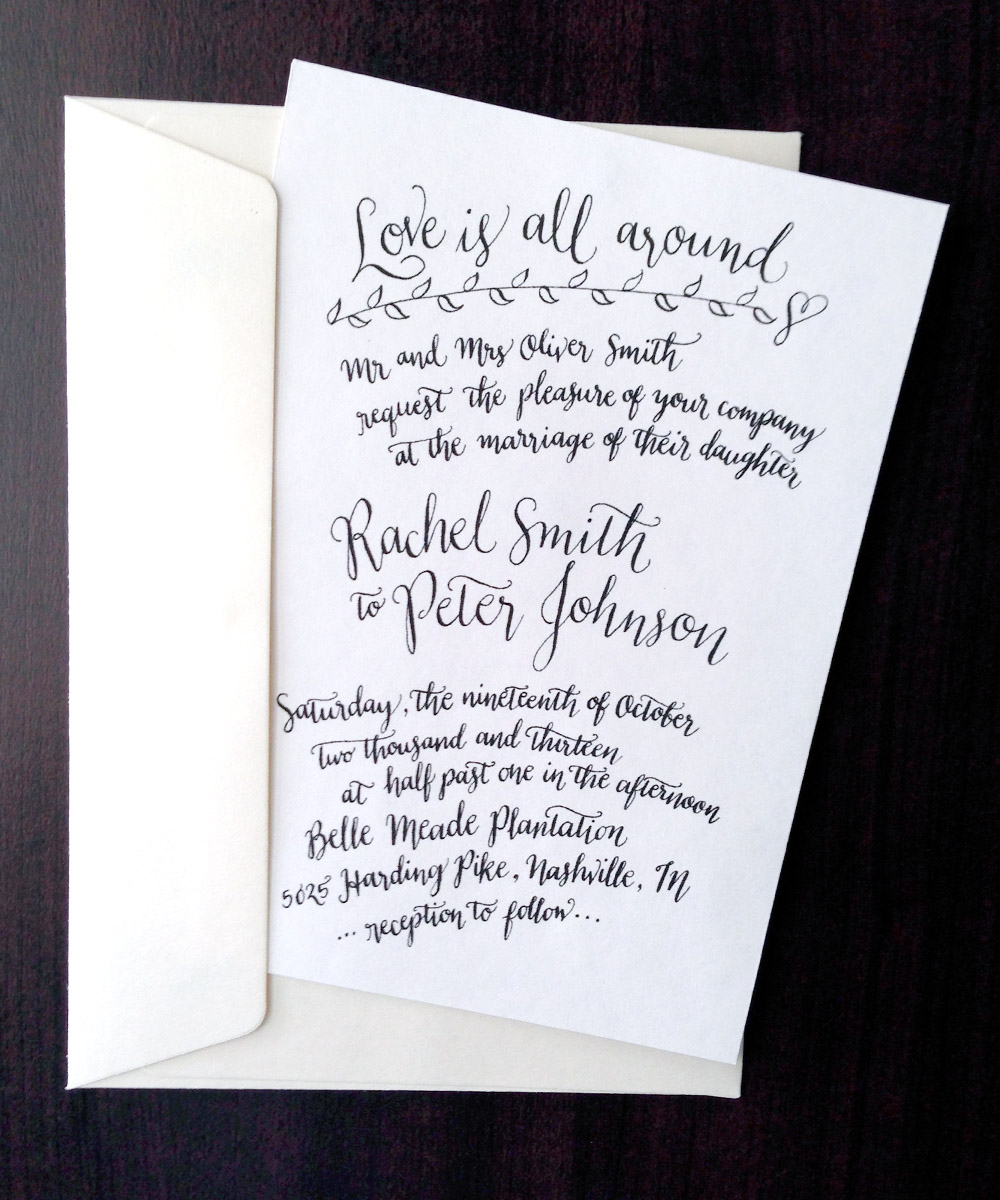 Love is all around
Mr and Mrs Oliver Smith
request the pleasure of your company
at the marriage of their daughter
Rachel Smith
to Peter Johnson
Saturday, the nineteenth of October
two thousand and thirteen
at half past one in the afternoon
Belle Meade Plantation
5025 Harding Pike, Nashville, TN
... reception to follow...